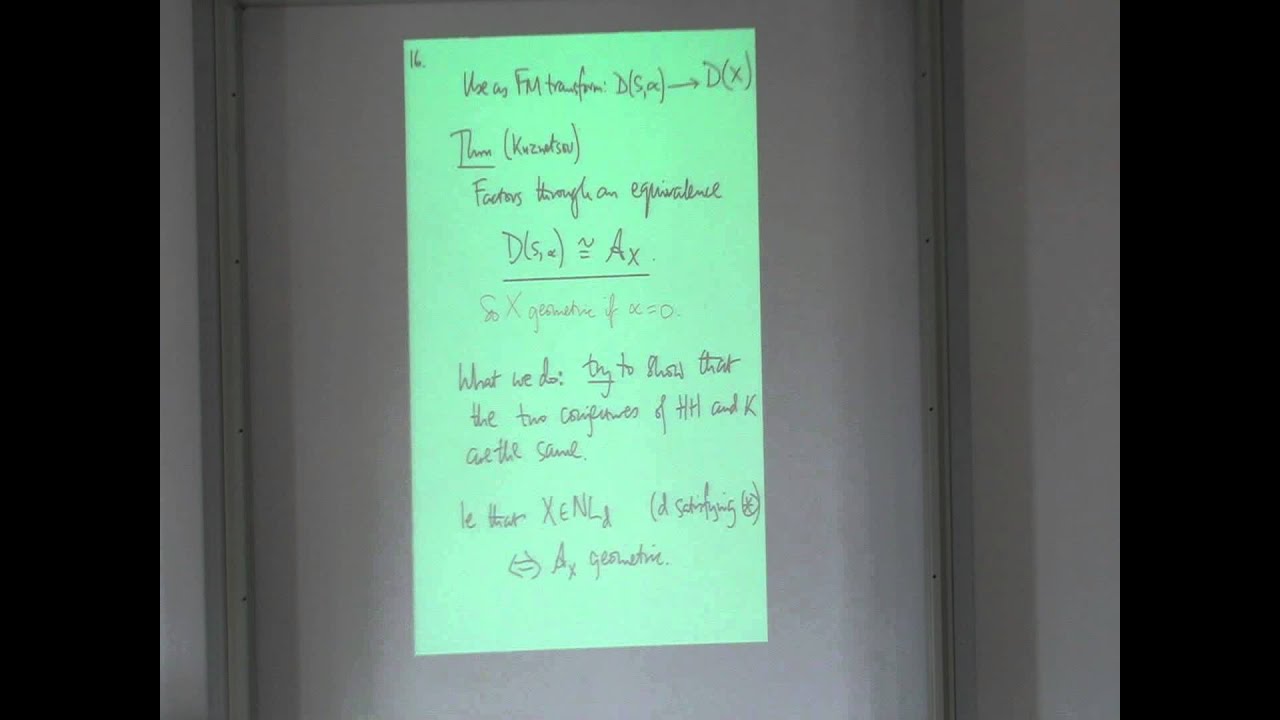 16.
Use as FM transform: D(S,α) → D(X)
Thm (Kuznetsov)
Factors through an equivalence
D(S,α) ≅ A_X.
So X geometric if α=0.
What we do: try to show that
the two conjectures of HH and K
are the same.
Ie that X∈NL_d (d satisfying (*))
⇔ A_X geometric.